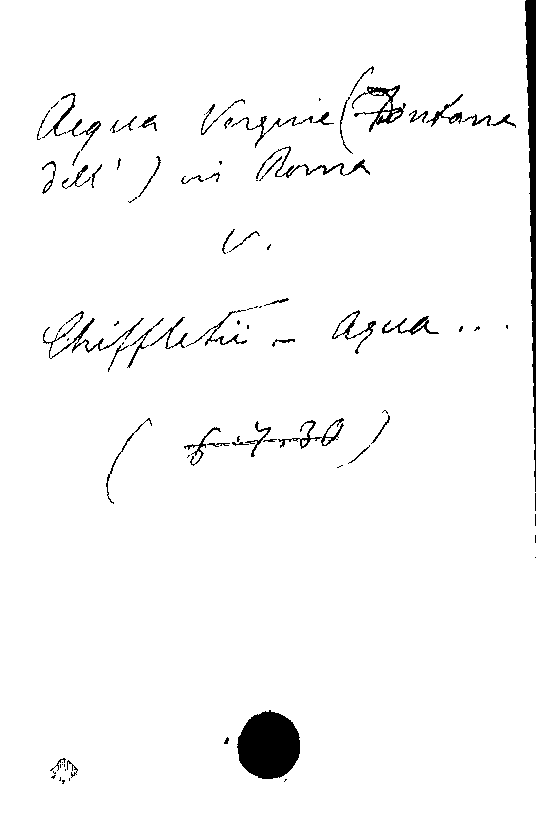 Acqua Vergine (Fontana
dell') in Roma
V.
Chiffletii - Aqua...
(6.7.30)